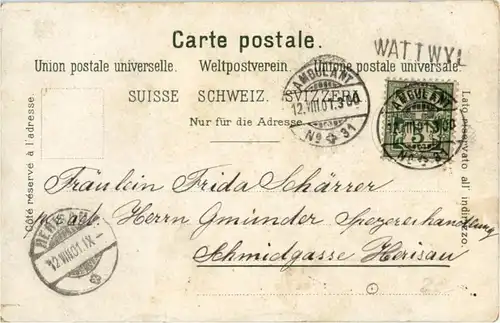 Carte postale.
WATTWYL
Union postale universelle. Weltpostverein. Unione postale universale.
SUISSE SCHWEIZ. SVIZZERA
Nur für die Adresse
AMBULANT
12.VIII.01.3
No 31
AMBULANT
VIII.01.3
No 31
5
Côté réservé à l'adresse.
Lato riservato all' indirizzo.
Fräulein Frida Schärrer
Herrn Gmünder Spezereihandlung
Schmidgasse Herisau
HERISAU
12.VIII.01.IX-